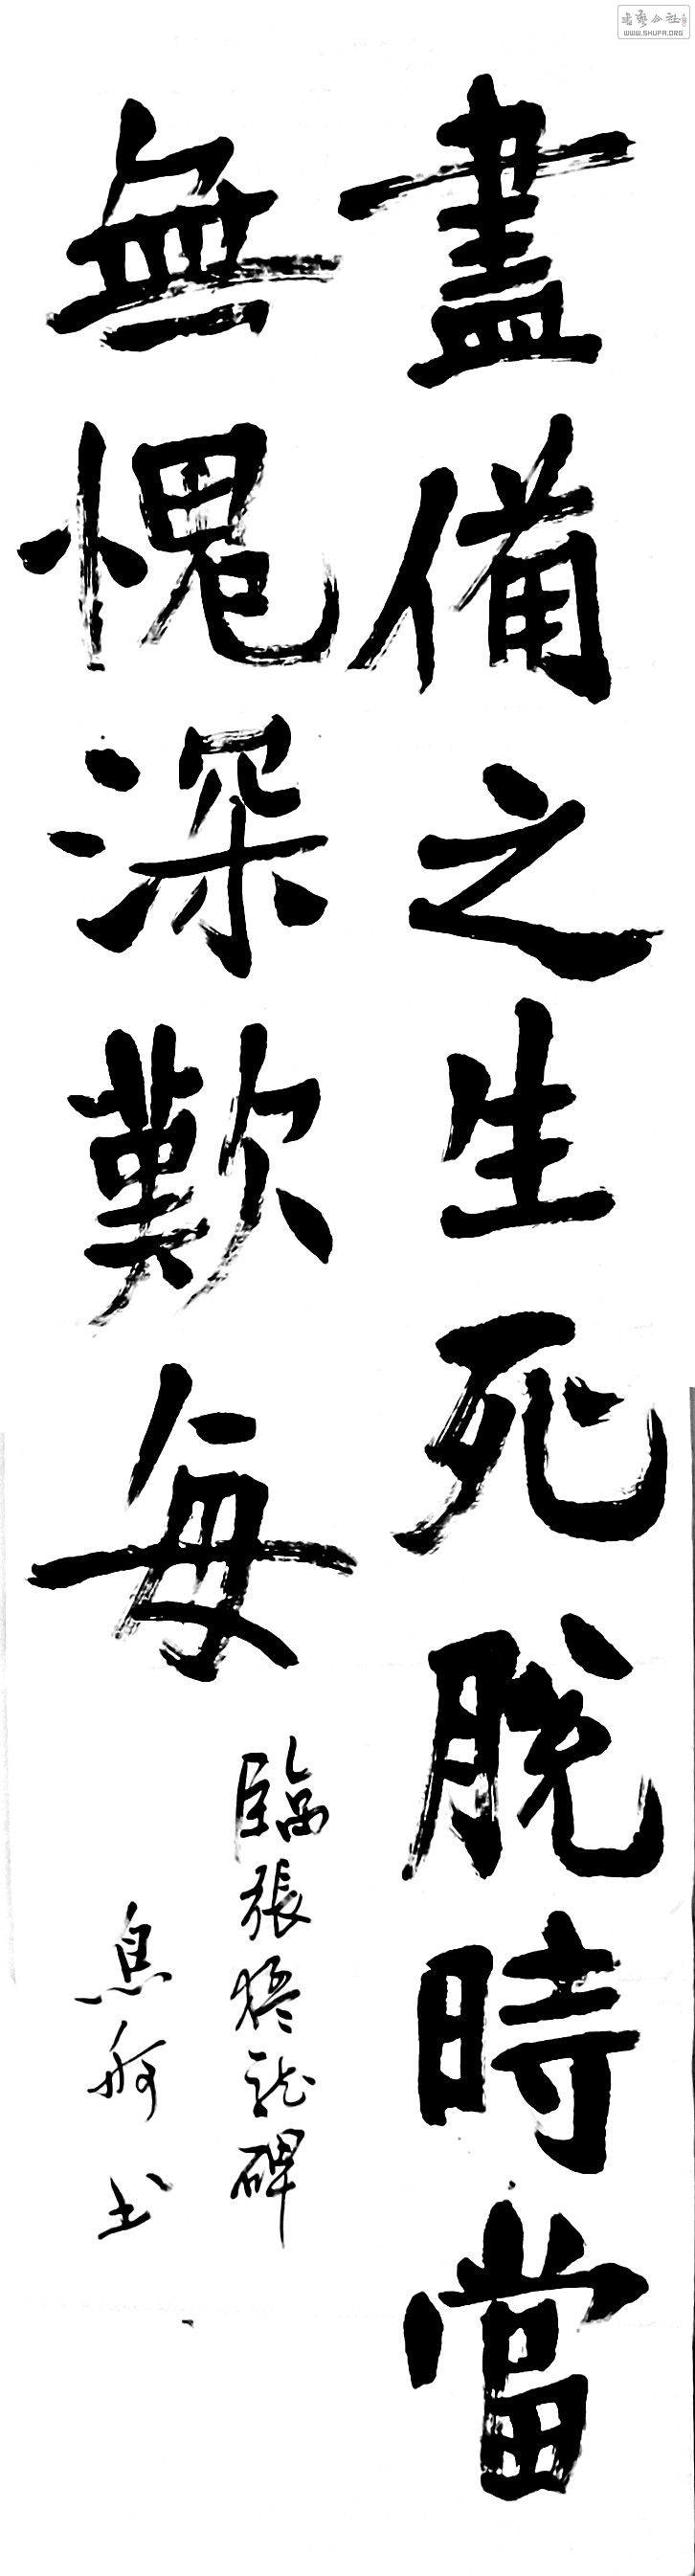 盡備之生死脫時當
無愧深歎每
臨張猛龍碑
書藝公社
WWW.SHUFA.ORG